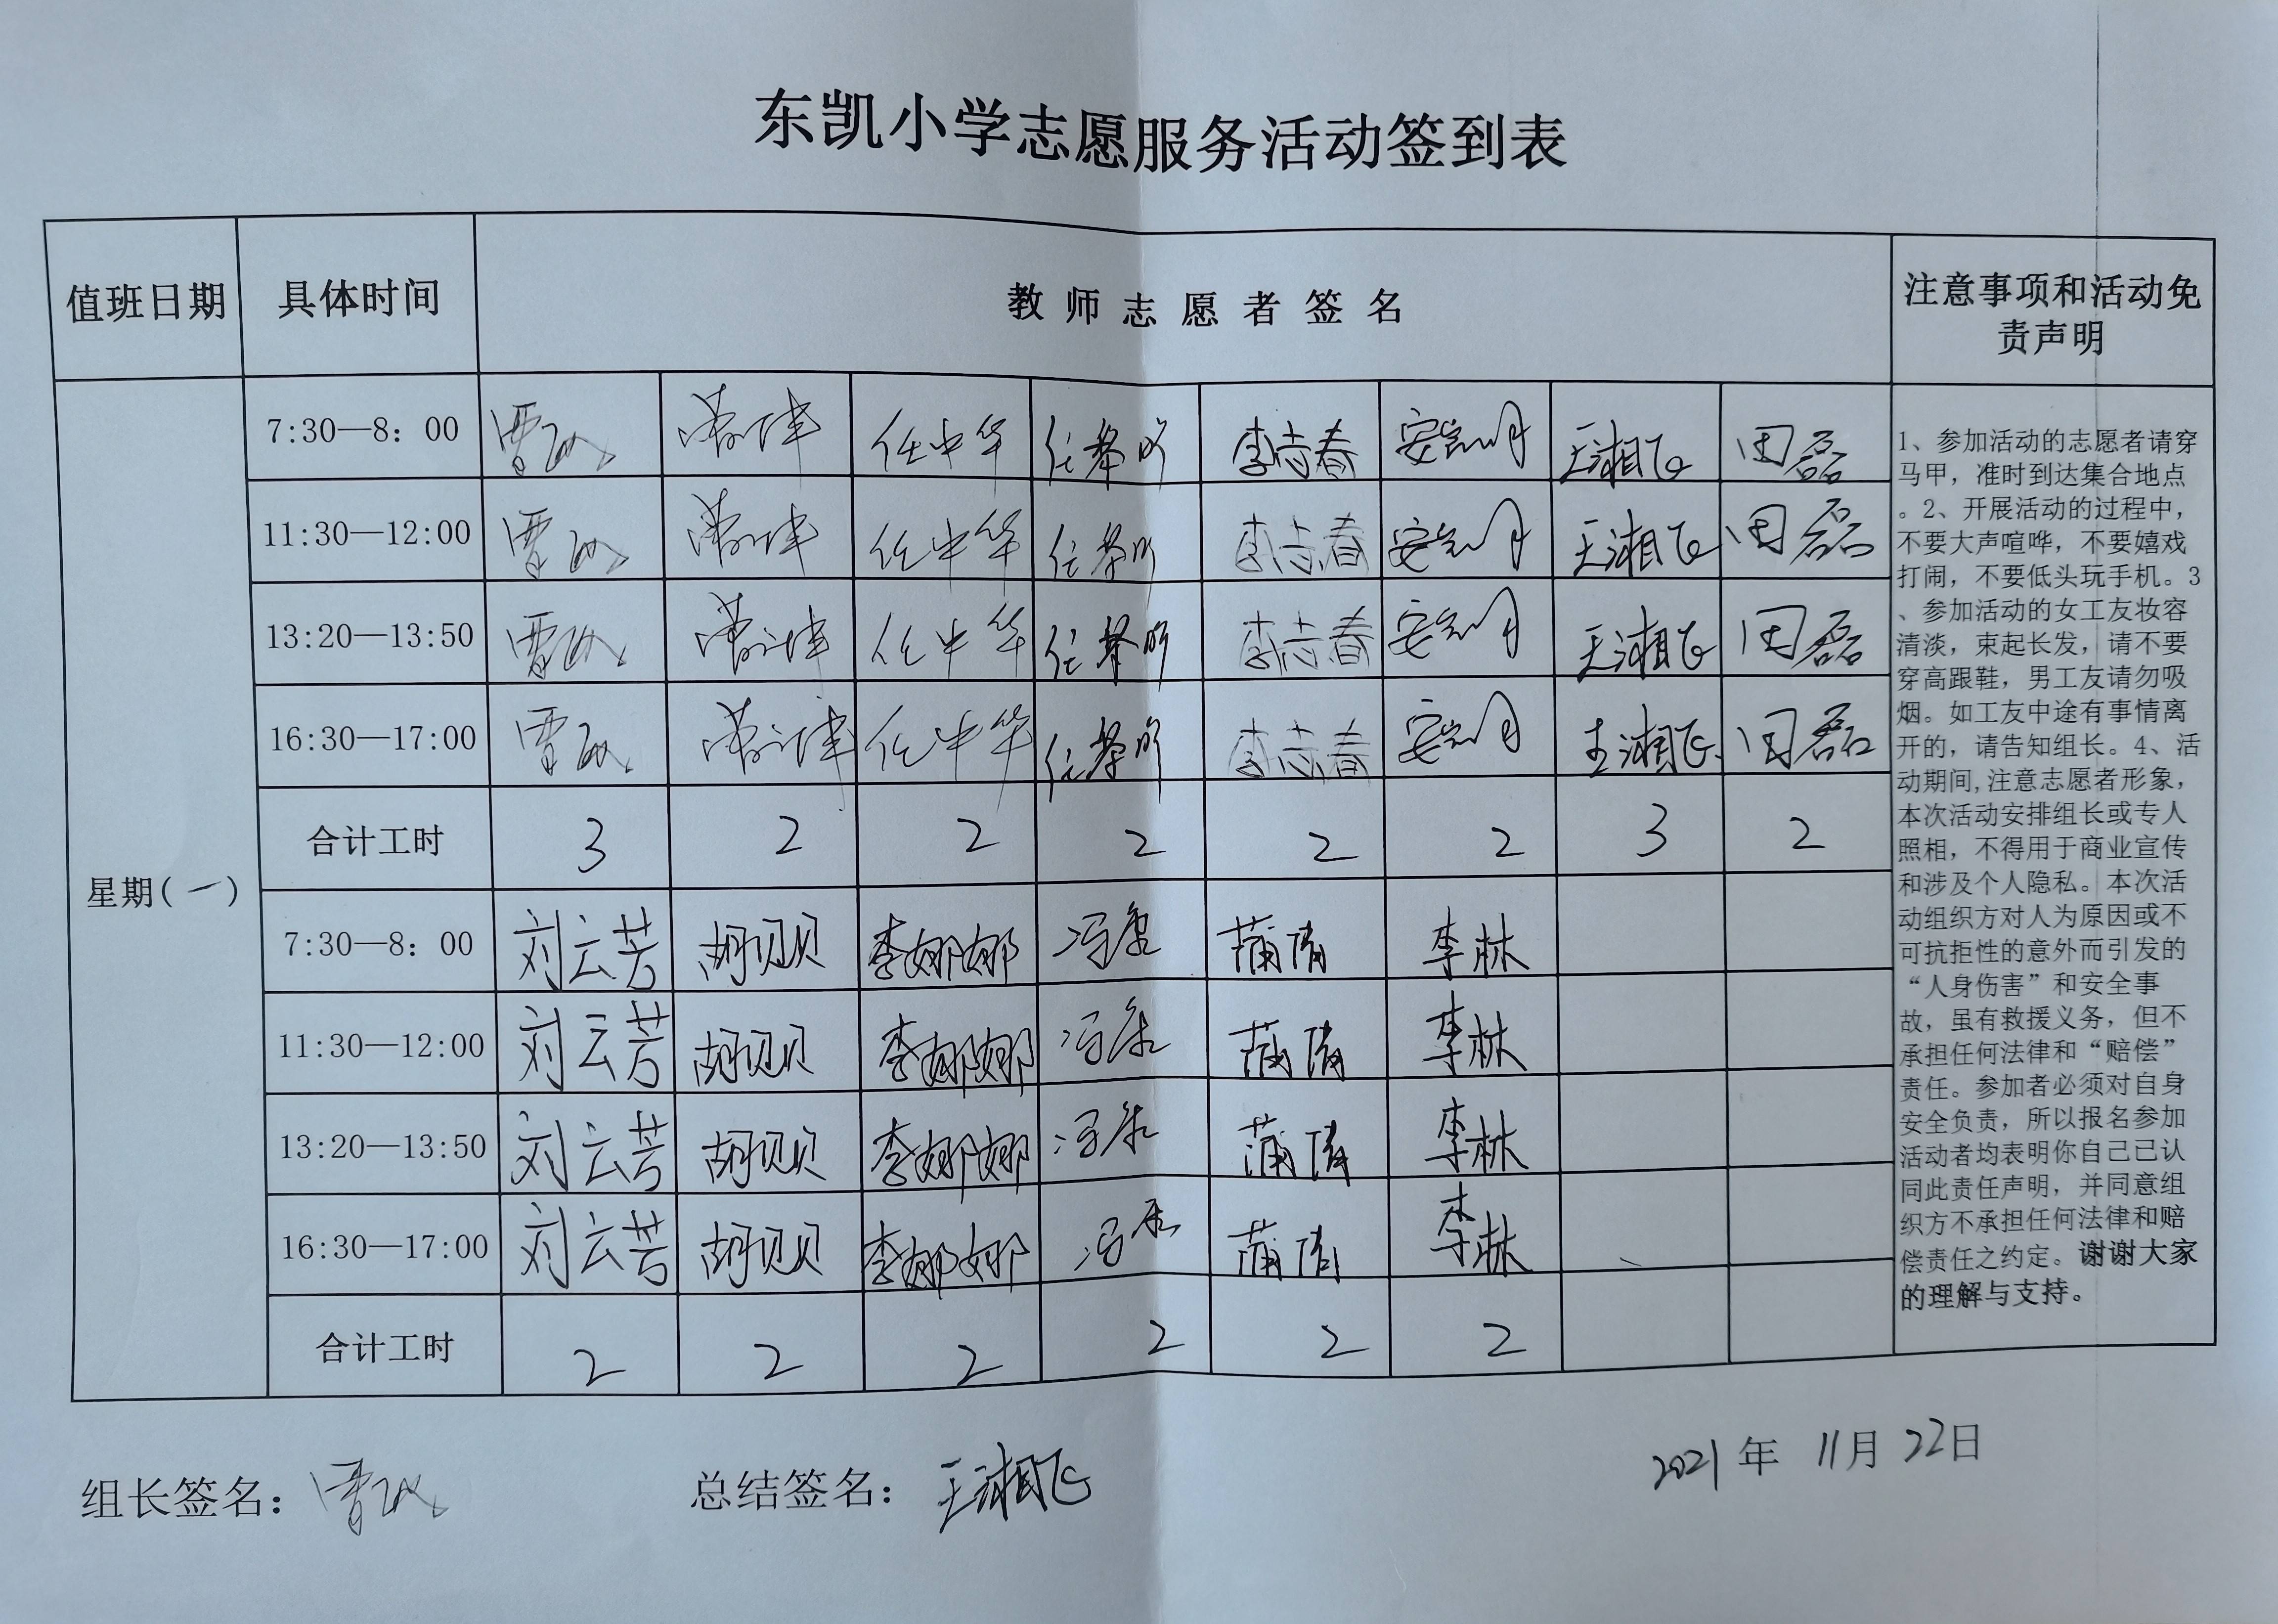 东凯小学志愿服务活动签到表
值班日期 具体时间 教师志愿者签名 注意事项和活动免
责声明
7:30—8：00 任中华 李志春 王湘飞 田磊
11:30—12:00 任中华 李志春 王湘飞 田磊
13:20—13:50 任中华 李志春 王湘飞 田磊
16:30—17:00 任中华 李志春 王湘飞 田磊
合计工时 3 2 2 2 2 2 3 2
星期(一)
7:30—8：00 刘云芳 胡贝贝 李娜娜 蒲倩 李林
11:30—12:00 刘云芳 胡贝贝 李娜娜 蒲倩 李林
13:20—13:50 刘云芳 胡贝贝 李娜娜 蒲倩 李林
16:30—17:00 刘云芳 胡贝贝 李娜娜 蒲倩 李林
合计工时 2 2 2 2 2 2
1、参加活动的志愿者请穿
马甲，准时到达集合地点
。2、开展活动的过程中，
不要大声喧哗，不要嬉戏
打闹，不要低头玩手机。3
、参加活动的女工友妆容
清淡，束起长发，请不要
穿高跟鞋，男工友请勿吸
烟。如工友中途有事情离
开的，请告知组长。4、活
动期间,注意志愿者形象，
本次活动安排组长或专人
照相，不得用于商业宣传
和涉及个人隐私。本次活
动组织方对人为原因或不
可抗拒性的意外而引发的
“人身伤害”和安全事
故，虽有救援义务，但不
承担任何法律和“赔偿”
责任。参加者必须对自身
安全负责，所以报名参加
活动者均表明你自己已认
同此责任声明，并同意组
织方不承担任何法律和赔
偿责任之约定。谢谢大家
的理解与支持。
组长签名： 总结签名：王湘飞 2021年 11月 22日